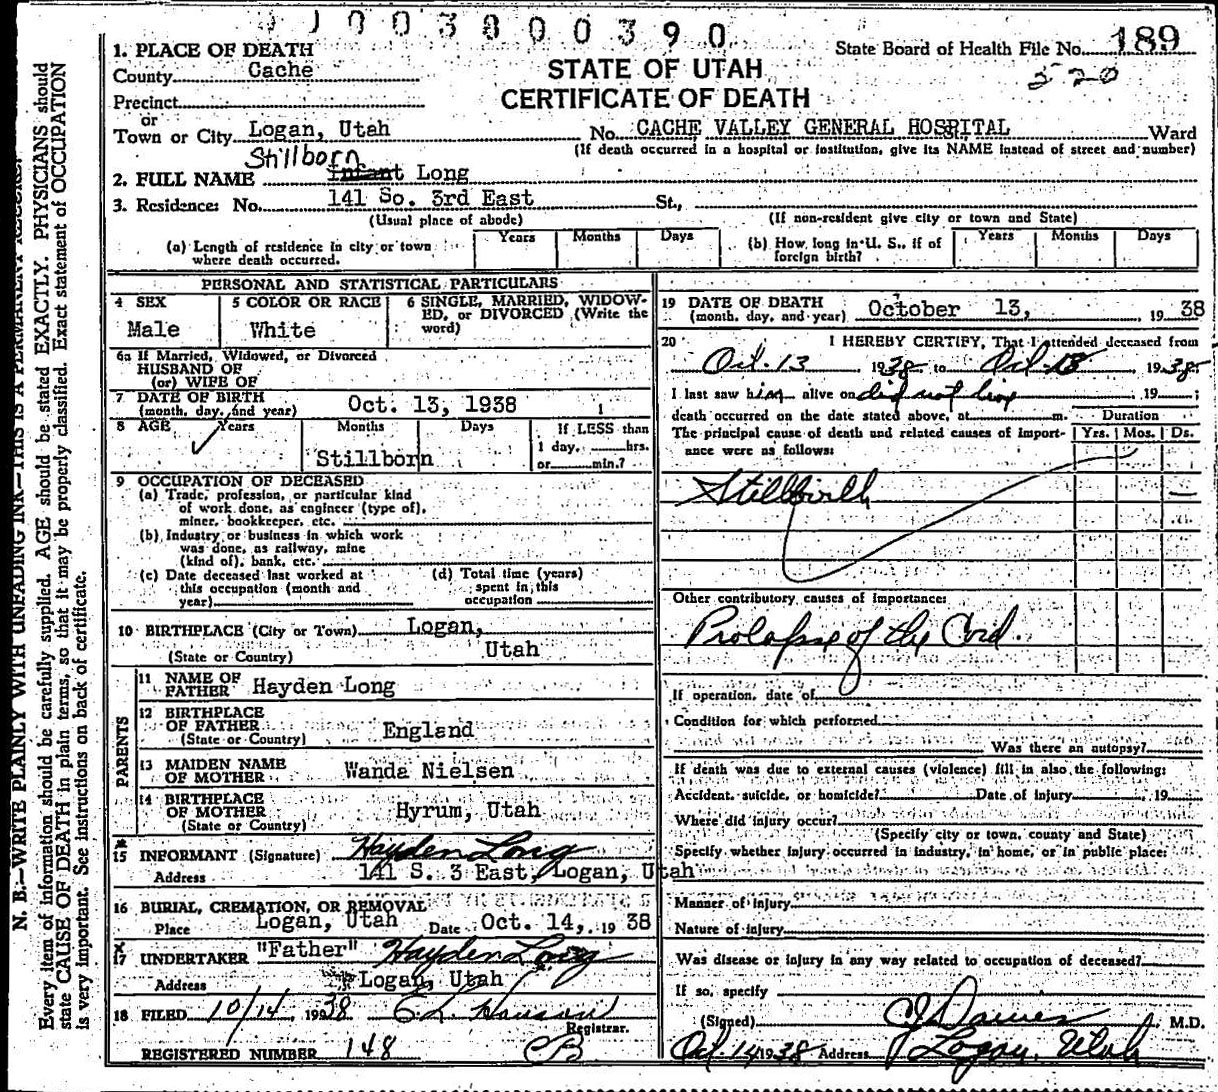 1003800390
1. PLACE OF DEATH
State Board of Health File No. 189
County Cache
STATE OF UTAH
520
Precinct
CERTIFICATE OF DEATH
or
Town or City Logan, Utah No. CACHE VALLEY GENERAL HOSPITAL Ward
(If death occurred in a hospital or institution, give its NAME instead of street and number)
Stillborn
2. FULL NAME Infant Long
3. Residence: No. 141 So. 3rd East St.,
(Usual place of abode) (If non-resident give city or town and State)
(a) Length of residence in city or town where death occurred. Years Months Days
(b) How long in U. S., if of foreign birth? Years Months Days
PERSONAL AND STATISTICAL PARTICULARS
4 SEX 5 COLOR OR RACE 6 SINGLE, MARRIED, WIDOW-
ED, or DIVORCED (Write the
word)
Male White
6a If Married, Widowed, or Divorced
HUSBAND OF
(or) WIFE OF
7 DATE OF BIRTH
(month, day, and year) Oct. 13, 1938
8 AGE Years Months Days If LESS than
1 day, hrs.
or min.?
Stillborn
9 OCCUPATION OF DECEASED
(a) Trade, profession, or particular kind
of work done, as engineer (type of),
miner, bookkeeper, etc.
(b) Industry or business in which work
was done, as railway, mine
(kind of), bank, etc.
(c) Date deceased last worked at
this occupation (month and
year)
(d) Total time (years)
spent in this
occupation
10 BIRTHPLACE (City or Town) Logan,
(State or Country) Utah
PARENTS
11 NAME OF
FATHER Hayden Long
12 BIRTHPLACE
OF FATHER
(State or Country) England
13 MAIDEN NAME
OF MOTHER Wanda Nielsen
14 BIRTHPLACE
OF MOTHER
(State or Country) Hyrum, Utah
15 INFORMANT (Signature) Hayden Long
Address 141 S. 3 East, Logan, Utah
16 BURIAL, CREMATION, OR REMOVAL
Place Logan, Utah Date Oct. 14, 19 38
17 UNDERTAKER "Father" Hayden Long
Address Logan, Utah
18 FILED 10/14 1938 C. L. Hanson
Registrar.
REGISTERED NUMBER 148 CB
19 DATE OF DEATH
(month, day, and year) October 13, 19 38
20 I HEREBY CERTIFY, That I attended deceased from
Oct. 13 1938 to Oct. 13 1938.
I last saw him alive on did not live 19 ;
death occurred on the date stated above, at m. Duration
The principal cause of death and related causes of import-
ance were as follows: Yrs. Mos. Ds.
Stillbirth —
Other contributory causes of importance:
Prolapse of the Cord.
If operation, date of
Condition for which performed
Was there an autopsy?
If death was due to external causes (violence) fill in also the following:
Accident, suicide, or homicide? Date of injury , 19
Where did injury occur?
(Specify city or town, county and State)
Specify whether injury occurred in industry, in home, or in public place:
Manner of injury
Nature of injury
Was disease or injury in any way related to occupation of deceased?
If so, specify
(Signed) M.D.
Oct. 14 1938 Address Logan, Utah
N. B.—WRITE PLAINLY WITH UNFADING INK—THIS IS A PERMANENT RECORD.
Every item of information should be carefully supplied. AGE should be stated EXACTLY. PHYSICIANS should
state CAUSE OF DEATH in plain terms, so that it may be properly classified. Exact statement of OCCUPATION
is very important. See instructions on back of certificate.